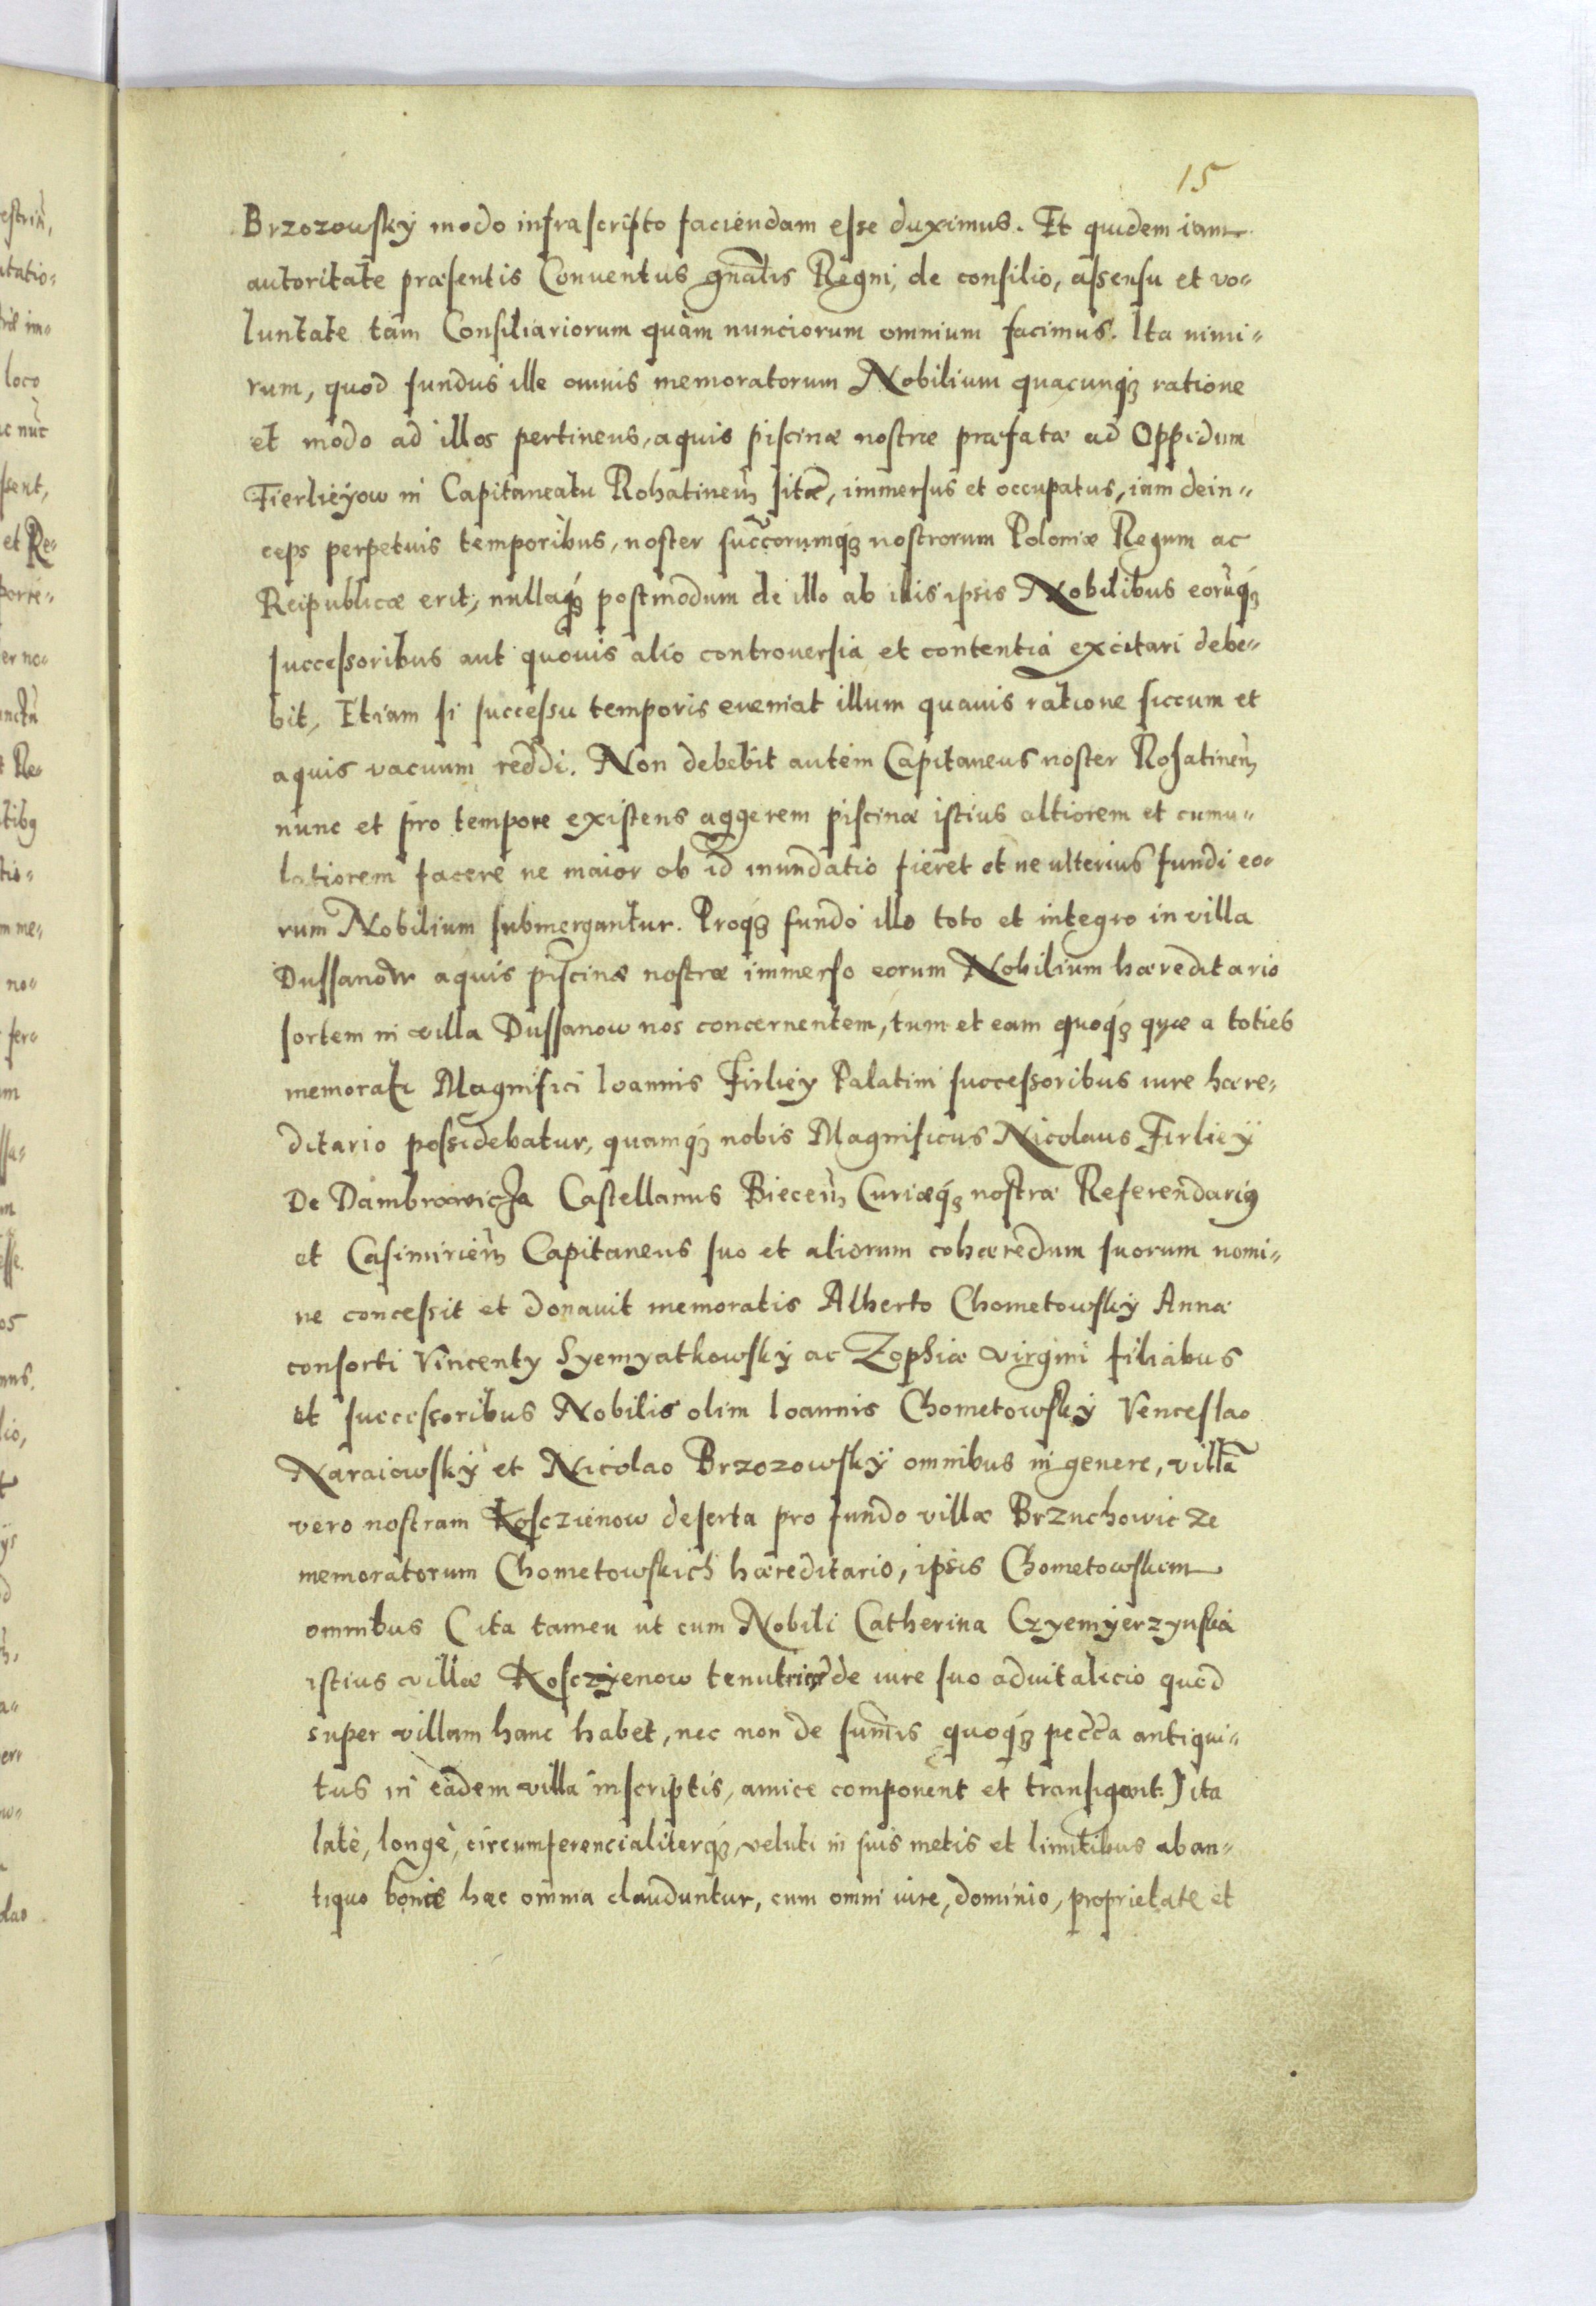 15
Brzozowskÿ modo infrascripto faciendam esse duximus. Et quidem iam
autoritate præsentis Conuentus gnãlis Regni, de consilio, assensu et vo-
luntate tàm Consiliariorum quàm nunciorum omnium facimus. Ita nimi-
rum, quod fundus ille omnis memoratorum Nobilium quacunqȝ ratione
et modo ad illos pertinens, aquis piscinæ nostræ præfatæ ad Oppidum
Fierlieÿow in Capitaneatu Rohatineñ sitæ, immersus et occupatus, iam dein-
ceps perpetuis temporibus, noster succ̃orumqȝ nostrorum Poloniæ Regum ac
Reipublicæ erit, nullaqȝ postmodum de illo ab illis ipsis Nobilibus eorũqȝ
successoribus aut quouis alio controuersia et contentia excitari debe-
bit, Etiam si successu temporis eueniat illum quauis ratione siccum et
aquis vacuum reddi. Non debebit autem Capitaneus noster Rohatineñ
nunc et pro tempore existens aggerem piscinæ istius altiorem et cumu-
latiorem facere ne maior ob id inundatio fieret et ne ulterius fundi eo-
rum Nobilium submergantur. Proqȝ fundo illo toto et integro in villa
Dussanow aquis piscinæ nostræ immerso eorum Nobilium hæreditario
sortem in villa Dussanow nos concernentem, tum et eam quoqȝ quæ a toties
memorati Magnifici Ioannis Firlieÿ Palatini successoribus iure hære-
ditario possidebatur, quamqȝ nobis Magnificus Nicolaus Firlieÿ
De Dambrowicza Castellanus Bieceñ Curiæqȝ nostræ Referendariꝰ
et Casimirieñ Capitaneus suo et aliorum cohæredum suorum nomi-
ne concessit et donauit memoratis Alberto Chometowskÿ Annæ
consorti Vincenty Syemyatkowskÿ ac Zophiæ virgini filiabus
et successoribus Nobilis olim Ioannis Chometowskÿ Venceslao
Naraiowskÿ et Nicolao Brzozowskÿ omnibus in genere, villã
vero nostram Koscziènow deserta pro fundo villæ Brzuchowicze
memoratorum Chometowskich hæreditario, ipsis Chometowskim
omnibus (ita tamen ut cum Nobili Catherina Czyemÿerzynska
istius villæ Kosczÿenow tenutrice de iure suo aduitalicio quod
super villam hanc habet, nec non de sum̃is quoqȝ pecc̃a antiqui-
tus in eadem villa inscriptis, amice component et transigent.) ita
latè, longè, circumferencialiterqȝ, veluti in suis metis et limitibus ab an-
tiquo bonis hæc omnia clauduntur, cum omni iure, dominio, proprietate et